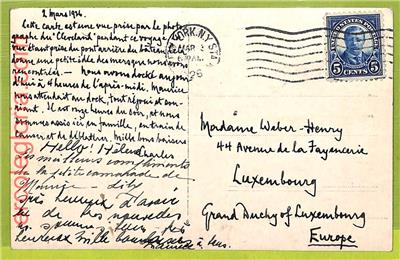 2 Mars 1926.
Cette carte est une vue prise par le photo-
graphe du "Cleveland" pendant ce voyage. La
vue étant prise du pont arrière du bâteau. Cela
donne une petite idée des mers que nous avons
rencontrées — Nous avons docké aujour-
d'hui à 4 heures de l'après-midi. Maurice
nous attendait au dock, tout réjoui et sou-
riant. Il est neuf heures du soir, et nous
sommes assis ici en famille, en train de
causer et de Mille bons baisers
Charles
Hello! Hélène
meilleurs compliments
de la petite camarade de
Maurice - Lily
Très heureux d'avoir
de
heureux mille
Maurice à tous.
YORK, N.Y. STA
MAR 3
6 30 AM
1926
UNITED STATES POSTAGE
5 CENTS 5
Madame Weber-Henry
44 Avenue de la Fayencerie
Luxembourg
Grand Duchy of Luxembourg
Europe